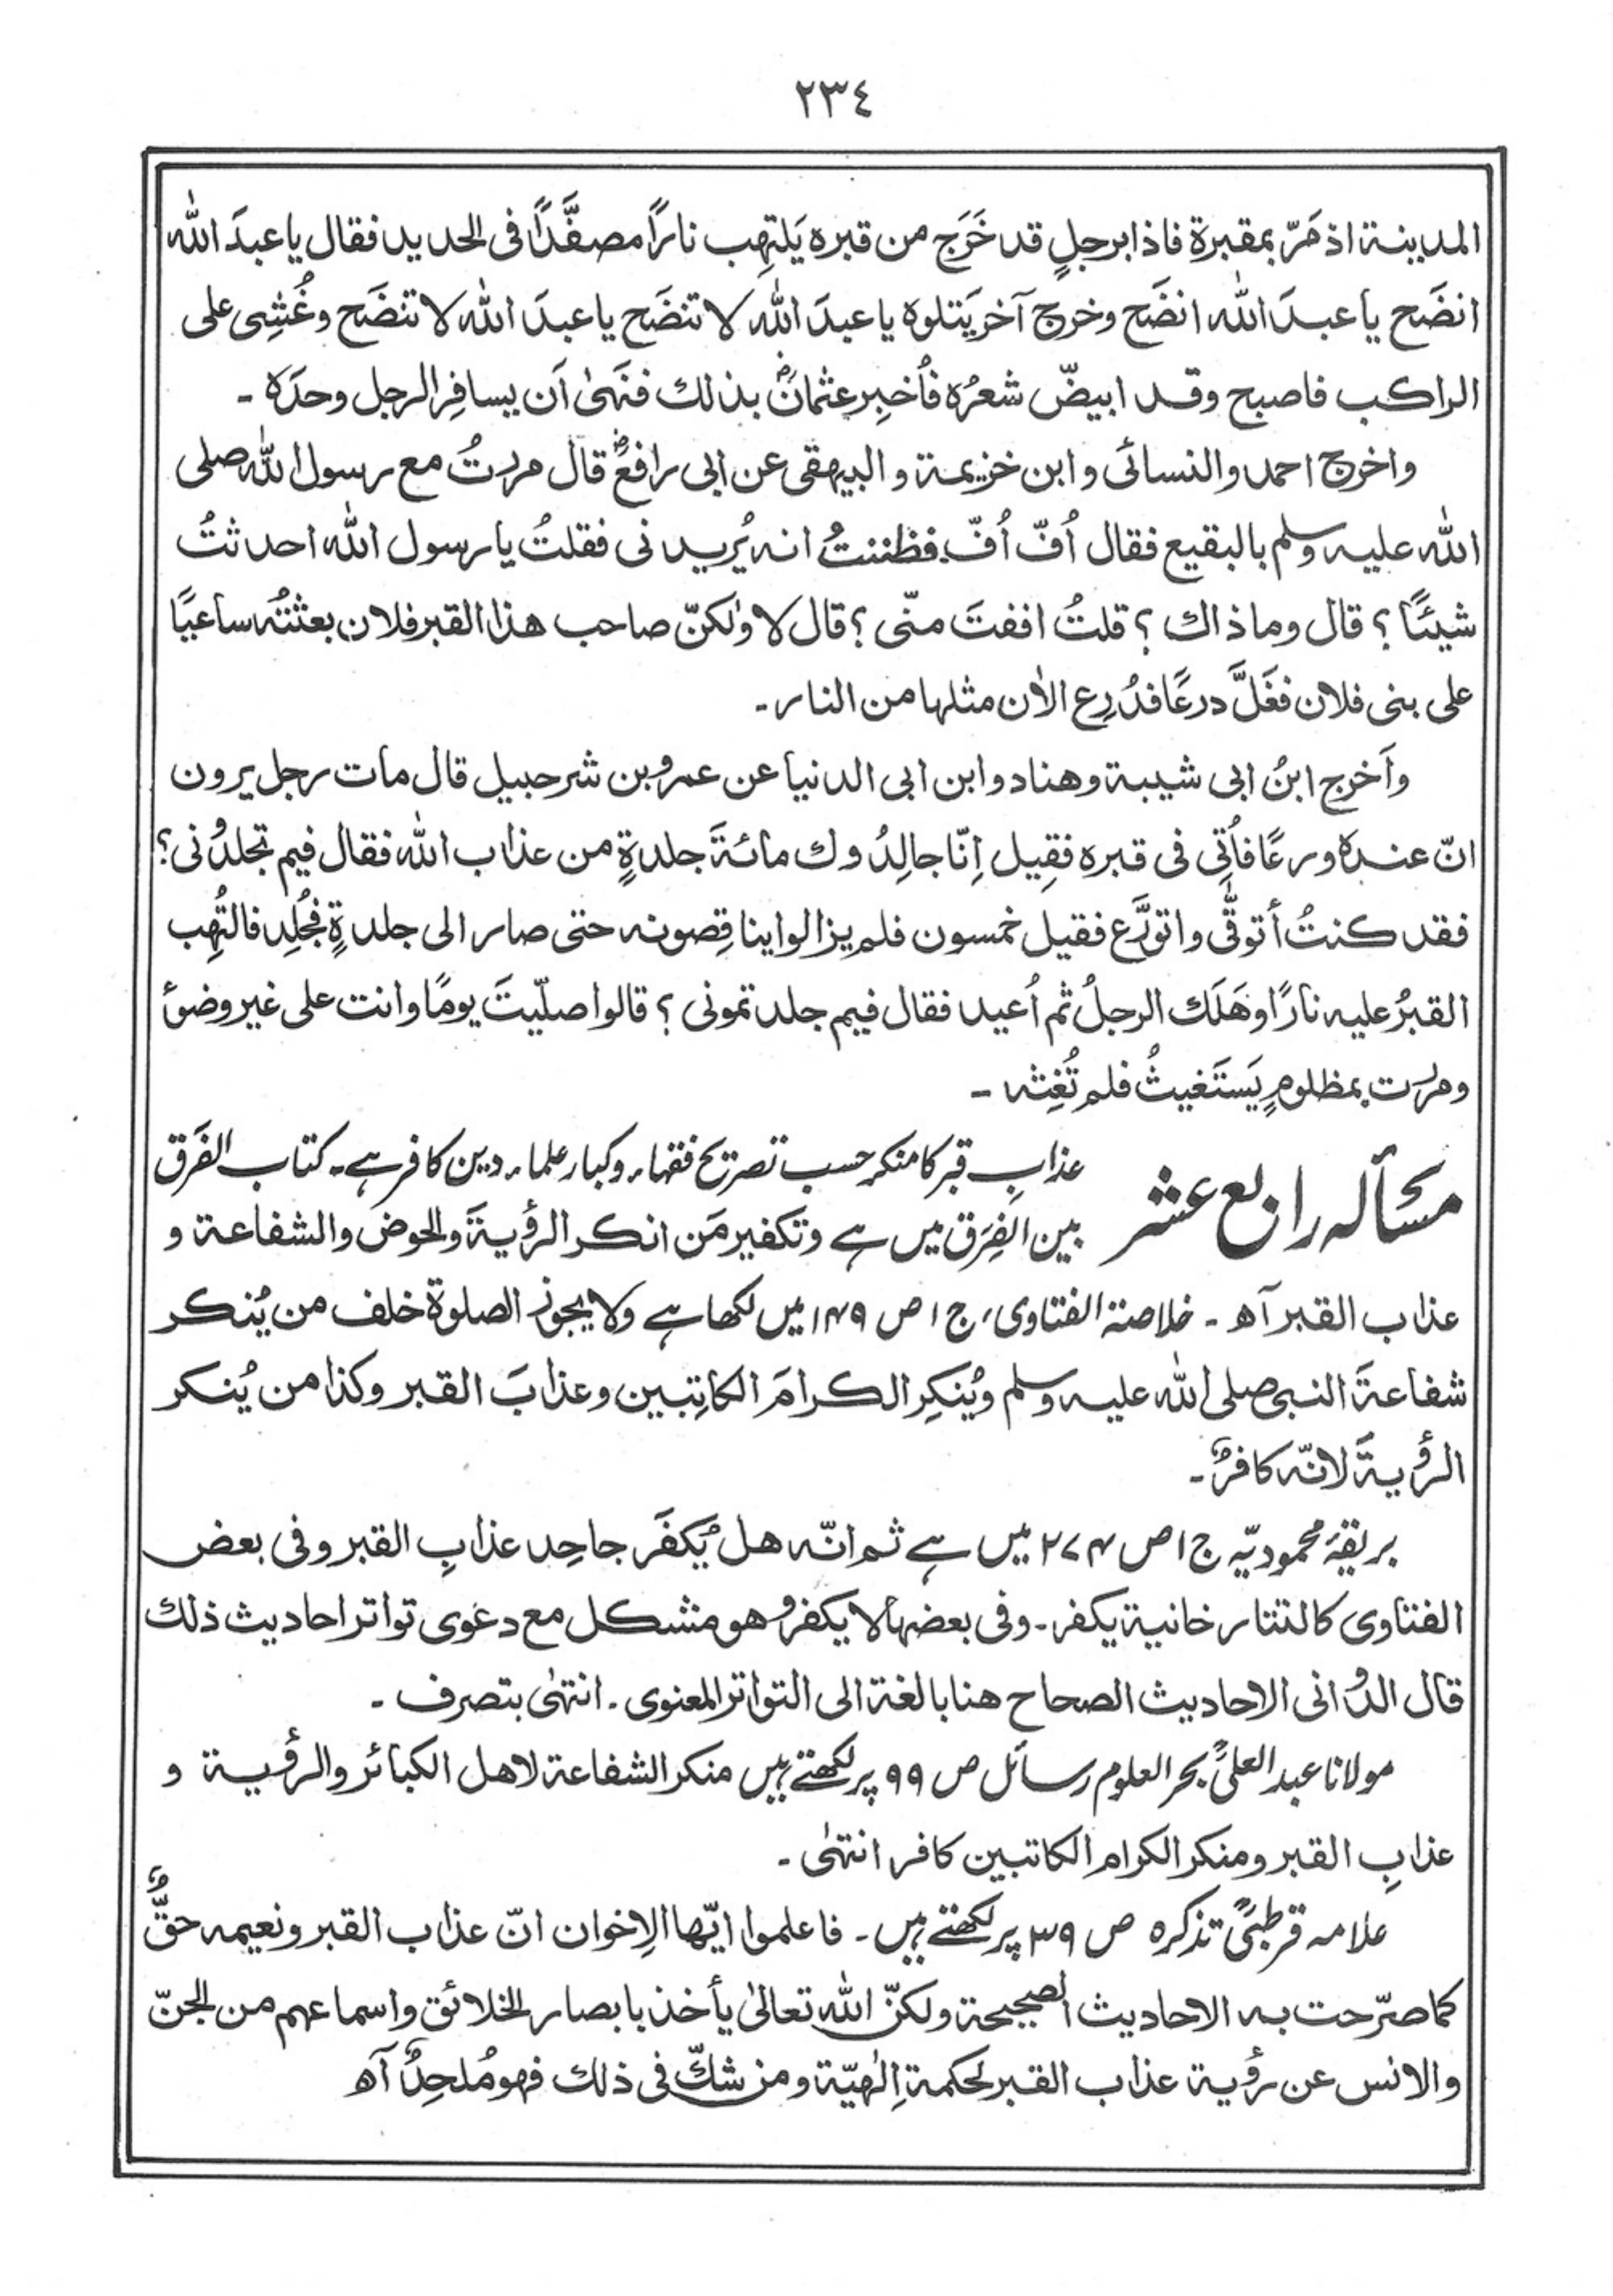 ٢٣٤
المدینۃ اذ مَرّ بمقبرة فاذا برجلٍ قد خَرَج من قبره یَلتهِب نارًا مصفَّدًا فی الحدید فقال یا عبدَ اللّٰه
انضَح یا عبدَ اللّٰه انضَح وخرج آخر یَتلوه یا عبدَ اللّٰه لا تنضَح یا عبدَ اللّٰه لا تنضَح وغُشِی علی
الراکب فاصبح وقد ابیضّ شعرُه فاُخبِر عثمانؓ بذلك فنَهیٰ اَن یسافِر الرجل وحدَه ۔
واخرج احمد والنسائی وابن خزیمۃ والبیهقی عن ابی رافعؓ قال مررتُ مع رسول اللّٰه صلی
اللّٰه علیه وسلم بالبقیع فقال اُفّ اُفّ۔ فظننتُ انه یُرید نی فقلتُ یا رسول اللّٰه احدثتُ
شیئًا ؟ قال وما ذاك ؟ قلتُ اففتَ منّی ؟ قال لا ولٰکنّ صاحب هذا القبر فلان بعثتُه ساعیًا
علی بنی فلان فغَلَّ درعًا فدُرِع الاٰن مثلها من النار ۔
وأخرج ابنُ ابی شیبۃ وهناد وابن ابی الدنیا عن عمرو بن شرحبیل قال مات رجل یرون
انّ عنده ورعًا فاُتِی فی قبره فقِیل اِنّا جالِدُوك مائۃَ جلدةٍ من عذاب اللّٰه فقال فیم تجلدُونی ؟
فقد کنتُ أتوقّٰی واتورَّع فقیل خمسون فلم یزالوا یناقِصونه حتی صار الی جلدةٍ فجُلِد فالتُهِب
القبرُ علیه نارًا وهَلَك الرجلُ ثم اُعید فقال فیم جلدتمونی ؟ قالوا صلّیتَ یومًا وانت علی غیر وضوءٔ
ومررت بمظلومٍ یَستَغیثُ فلم تُغِثه ۔
مسألہ رابع عشر
عذابِ قبر کا منکر حسب تصریح فقہاء وکبار علماء دین کافر ہے۔ کتاب الفَرق
بین الفِرَق میں ہے وتکفیر مَن انکر الرؤیۃَ والحوضَ والشفاعۃ و
عذاب القبر آھ ۔ خلاصۃ الفتاوی، ج ۱ ص ۱۴۹ میں لکھا ہے ولا یجوز الصلوة خلف من یُنکر
شفاعۃَ النبی صلی اللّٰه علیه وسلم ویُنکِر الکرامَ الکاتِبین وعذابَ القبر وکذا من یُنکر
الرؤیۃَ لانّه کافرٌ ۔
بریقۂ محمودیّہ ج ۱ ص ۲۷۴ میں ہے ثم انّه هل یُکفَر جاحِد عذابِ القبر وفی بعض
الفتاوی کالتتارخانیۃ یکفر ۔ وفی بعضها لا یکفر وهو مشکل مع دعوی تواتر احادیث ذلك
قال الدوّانی الاحادیث الصحاح هنا بالغۃ الی التواتر المعنوی ۔ انتهیٰ بتصرف ۔
مولانا عبد العلیؒ بحر العلوم رسائل ص ۹۹ پر لکھتے ہیں منکر الشفاعۃ لاهل الکبائر والرؤیۃ و
عذابِ القبر ومنکر الکرام الکاتبین کافر انتهیٰ ۔
علامہ قرطبیؒ تذکرہ ص ۳۹ پر لکھتے ہیں ۔ فاعلموا ایّها الاِخوان انّ عذاب القبر ونعیمه حقٌّ
کما صرّحت به الاحادیث الصحیحۃ ولکنّ اللّٰه تعالیٰ یأخذ بابصار الخلائق واسماعهم من الجنّ
والانس عن رؤیۃ عذاب القبر لحکمۃ اِلٰهیّۃ ومن شكّ فی ذلك فهو مُلحِدٌ آھ